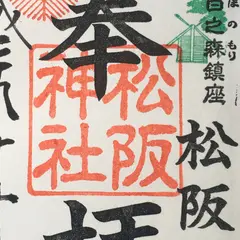 のもり
之森鎮座
松阪
奉拝
松阪
神社